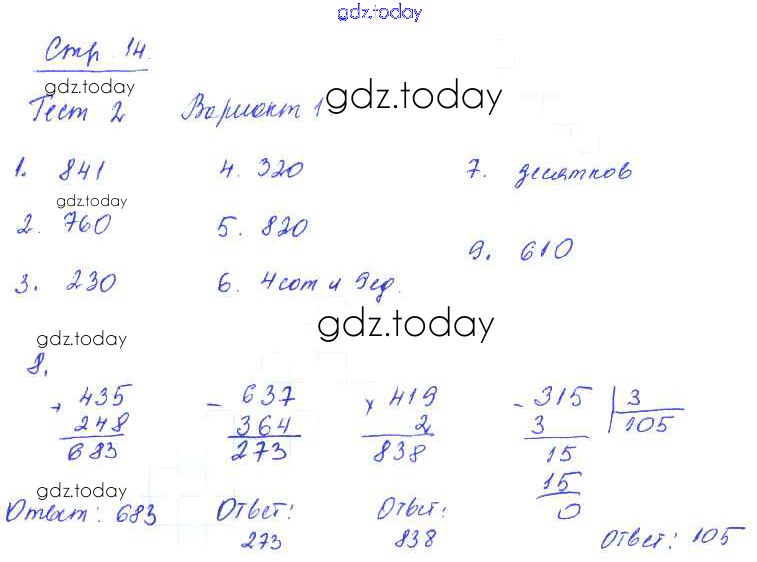 gdz.today
Стр. 14.
gdz.today
Тест 2 Вариант 1 gdz.today
1. 841 4. 320 7. десятков
gdz.today
2. 760 5. 820
9. 610
3. 230 6. 4 сот и 9 ед.
gdz.today gdz.today
8.
+ 435 - 637 x 419 - 315 | 3
248 364 2 3 105
683 273 838 15
gdz.today 15
Ответ: 683 Ответ: Ответ: 0
273 838 Ответ: 105